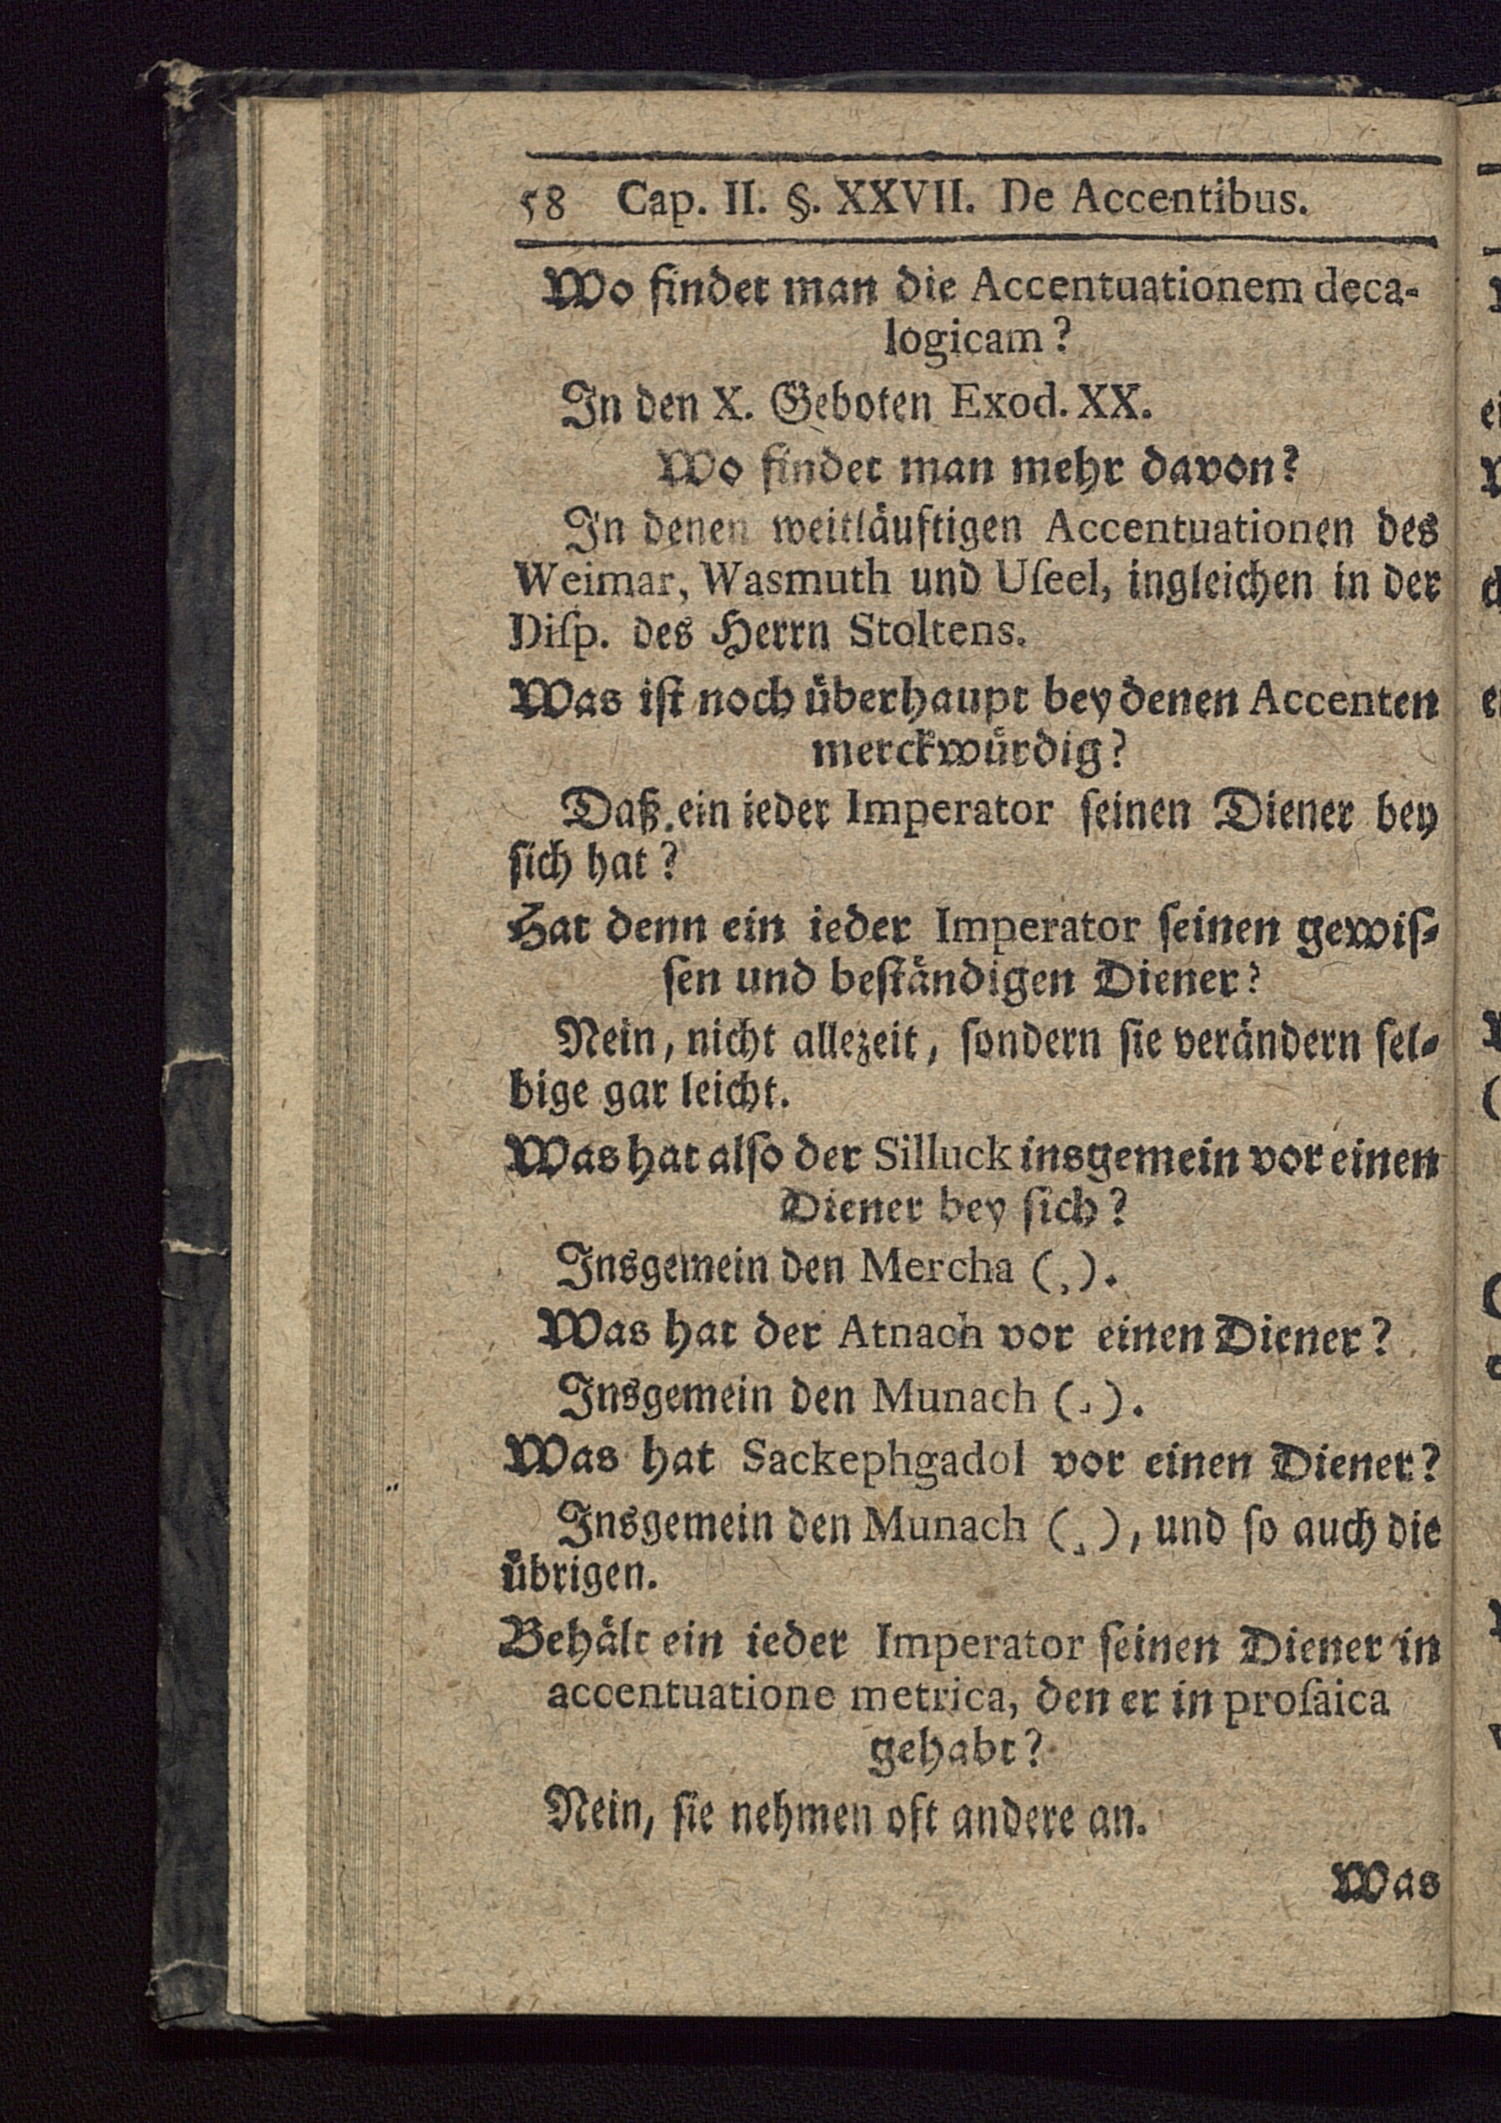 58 Cap. II. §. XXVII. De Accentibus.
Wo findet man die Accentuationem deca-
logicam?
In den X. Geboten Exod. XX.
Wo findet man mehr davon?
In denen weitläuftigen Accentuationen des
Weimar, Wasmuth und Uſeel, ingleichen in der
Diſp. des Herrn Stoltens.
Was iſt noch überhaupt bey denen Accenten
merckwürdig?
Daß ein ieder Imperator ſeinen Diener bey
ſich hat?
Hat denn ein ieder Imperator ſeinen gewiſ-
ſen und beſtändigen Diener?
Nein, nicht allezeit, ſondern ſie verändern ſel-
bige gar leicht.
Was hat alſo der Silluck insgemein vor einen
Diener bey ſich?
Insgemein den Mercha (֥).
Was hat der Atnach vor einen Diener?
Insgemein den Munach (֣).
Was hat Sackephgadol vor einen Diener?
Insgemein den Munach (֣), und ſo auch die
übrigen.
Behält ein ieder Imperator ſeinen Diener in
accentuatione metrica, den er in proſaica
gehabt?
Nein, ſie nehmen oft andere an.
Was